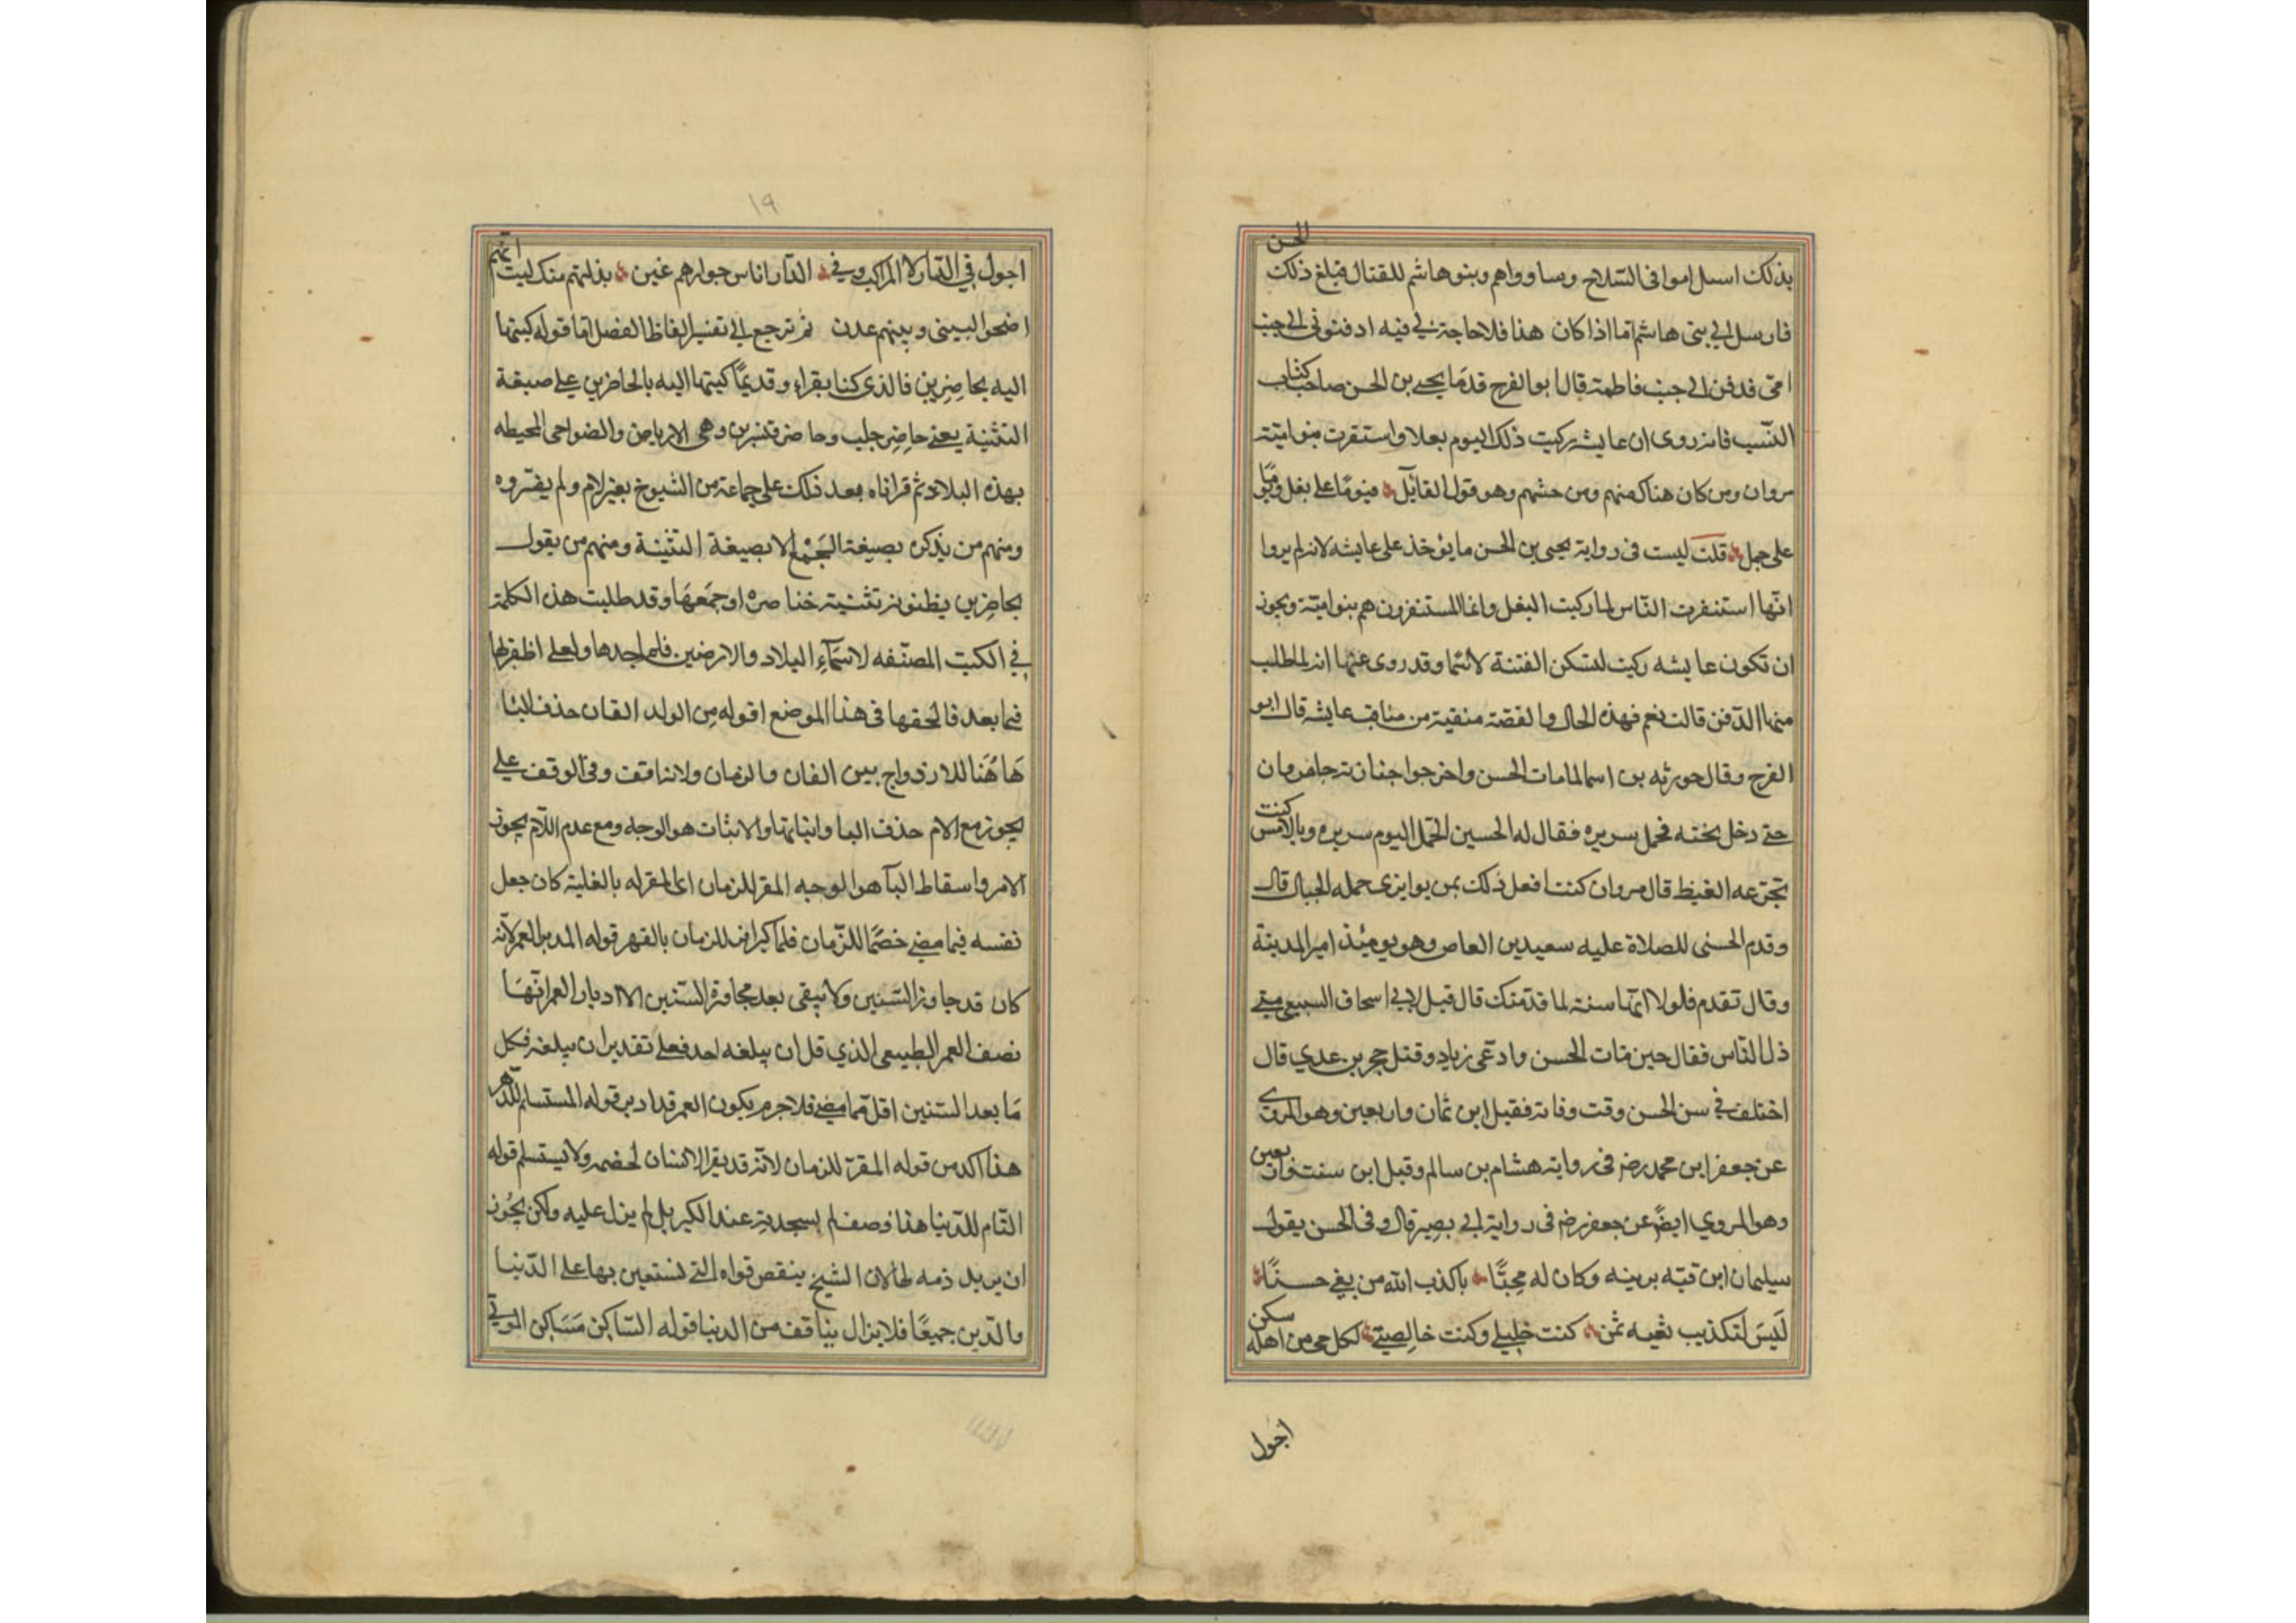 الحسن
بذلك استلاموا فى السّلاح وساوواهم وبنو هاشم للقتال فبلغ ذلك
فارسل الى بنى هاشم اما اذا كان هذا فلا حاجة لى فيه ادفنونى الى جنب
امى فدفن الى جنب فاطمة قال ابو الفرج قدما يحيى بن الحسن صاحب كتاب
النّسب فانه روى ان عايشه ركبت ذلك اليوم بغلا واستفرت بنو اميّة
مروان ومن كان هناك منهم ومن حشمهم وهو قول القايل فيومًا على بغل ويومًا
على جمل قلت ليست فى رواية يحيى بن الحسن ما يؤخذ على عايشه لانه لم يروا
انّها استنفرت النّاس لما ركبت البغل وانما المستنفرون هم بنو اميّة ويجوز
ان تكون عايشه ركبت لتسكن الفتنة لا سيّما وقد روى عنها انه لما طلب
منها الدّفن قالت نعم فهذه الحال والقصّة منقبة من مناقب عايشة قال ابو
الفرج وقال جويريه بن اسما لما مات الحسن واخرجوا جنازته جا مروان
حتى دخل تحته فحمل سريره فقال له الحسين اتحمل اليوم سريره وبالامس كنت
تجرّعه الغيظ قال مروان كنت افعل ذلك بمن يوازى حمله الجبال قال
وقدم الحسين للصلاة عليه سعيد بن العاص وهو يومئذ امير المدينة
وقال تقدم فلولا انّها سنة لما قدّمتك قال قيل لابى اسحاق السبيعى متى
ذل النّاس فقال حين مات الحسن وادعّى زياد وقتل حجر بن عدي قال
اختلف فى سن الحسن وقت وفاته فقيل ابن ثمان واربعين وهو المروى
عن جعفر ابن محمد رضه فى رواية هشام بن سالم وقيل ابن ست واربعين
وهو المروي ايضًا عن جعفر رضه فى رواية ابى بصير قال وفى الحسن يقول
سليمان ابن قتيّه يرثيه وكان له محبًّا ياكذب الله من يغى حسنًا
لَيسَ لتكذيب نعيه ثمن كنت خليلى وكنت خالِصتى لكل حى من اهله سكن
اجول
١٩
اجول في الدّار لا اراك وفى الدّار اناس جوارهم غبن بدلتهم منك ليت انّهم
اضحوا بينى وبينهم عدن ثم نرجع الى تفسير الفاظ الفصل اما قوله كتبها
اليه بحاضِرِين فالذى كنا نقراه وقديمًا كتبها اليه بالحاضرين على صيغة
التثنية يعنى حاضِر حلب وحاضر قنسرين وهى الارباض والضواحى المحيطه
بهذه البلاد ثم قراناه بعد ذلك على جماعة من الشيوخ بغير لام ولم يفسّروه
ومنهم من يذكره بصيغة الجَمْع لا بصيغة التثنية ومنهم من يقول
بحاضِرين يظنونه تثنية خناصره او جمعَهَا وقد طلبت هذه الكلمة
في الكتب المصنّفه لاسمَآءِ البلاد والارضين فلم اجدها ولعلى اظفر بها
فيما بعد فالحقها فى هذا الموضع اقوله مِن الوالد الفان حذف اليا
هَاهُنا للازدواج بين الفان والزمان ولانه وقف وفى الوقف على
يجوز مع الام حذف اليا واثباتها والاثبات هو الوجه ومع عدم اللّام يجوز
الامر واسقاط اليآ هو الوجه المقر للزمان اى المقر له بالغلبة كان جعل
نفسه فيما مضى خصمًا للزّمان فلما كبر اقر للزمان بالقهر قوله المدبر العمر لانّه
كان قد جاوز السّتين ولا يبقى بعد مجاوزة السّتين الا ادبار العمر انّهَا
نصف العمر الطبيعى الذي قل ان يبلغه احد فعلى تقدير ان يبلغه فكل
مَا بعد الستين اقل مما مضى فلا جرم يكون العمر قد ادبر قوله المستسلم للدّهر
هذا اكد من قوله المقرّ للزمان لانّه قد يقر الانسان لخصمه ولا يستسلم قوله
الذّام للدّنيا هذا وصف لم يستجد به عند الكبر بل لم يزل عليه ولكن يجُوز
ان يريد ذمه لها لان الشيخ ينقص قواه التى تستعين بها على الدّنيا
والدّين جميعًا فلا يزال يتافف من الدنيا قوله السّاكن مَسَاكن الموتى